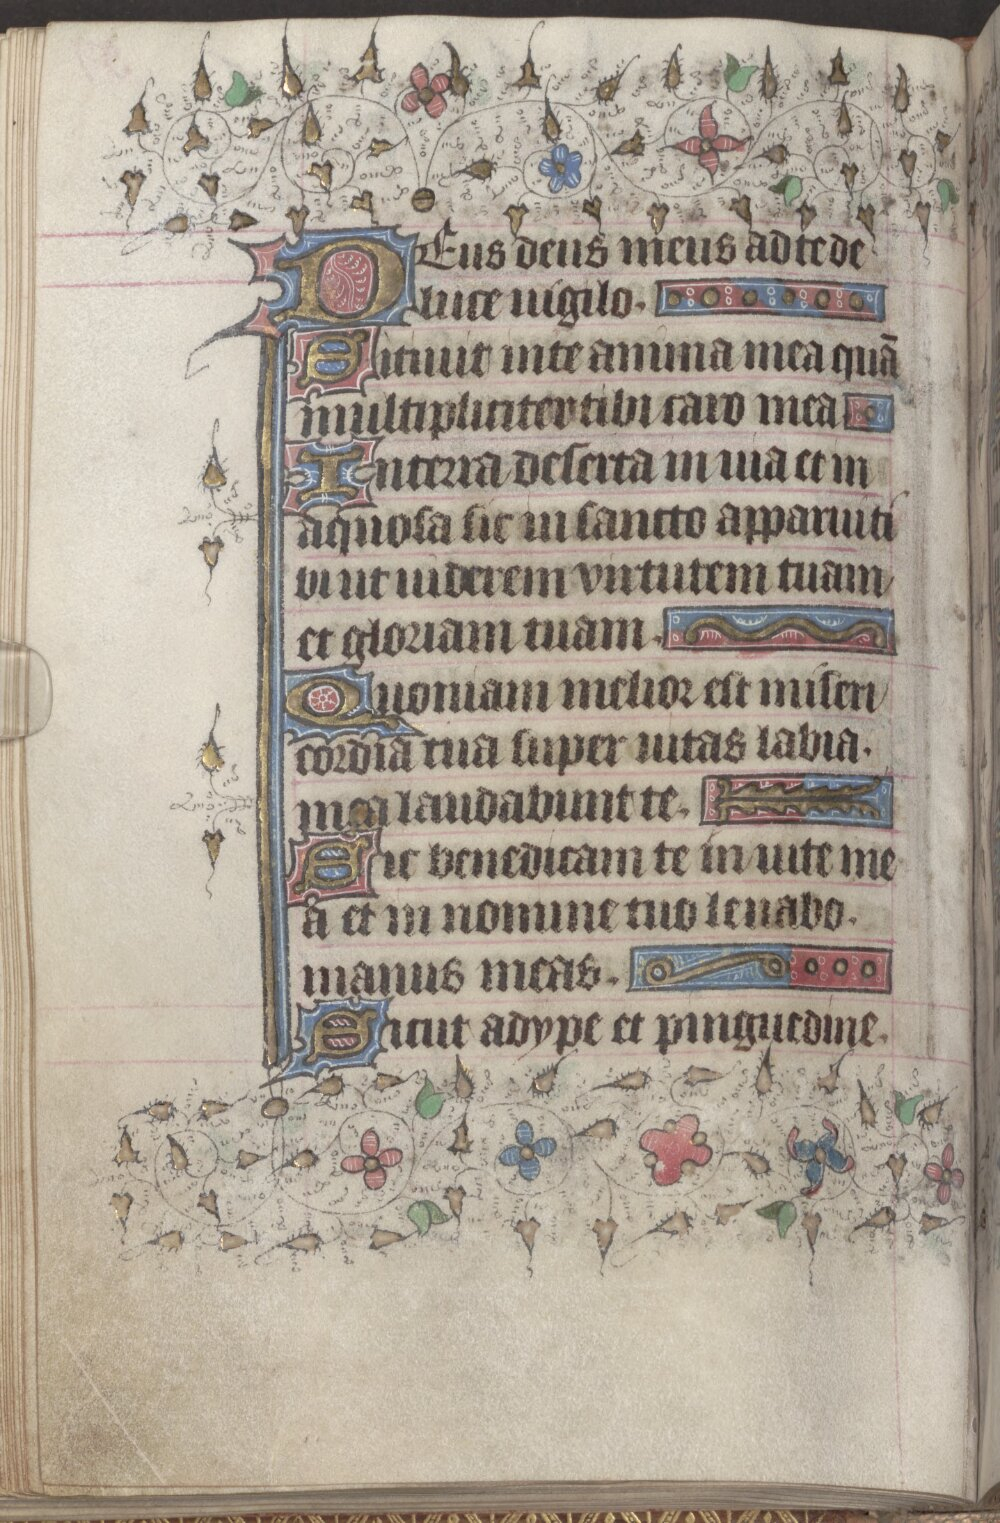 DEus deus meus ad te de
luce uigilo.
Sitiuit in te anima mea quā
multipliciter tibi caro mea
In terra deserta in uia et in
aquosa sic in sancto apparui ti
bi ut uiderem virtutem tuam
et gloriam tuam.
Quoniam melior est miseri
cordia tua super uitas labia.
mea laudabunt te.
Sic benedicam te in uite me
a et in nomine tuo leuabo.
manus meas.
Sicut adype et pinguedine.